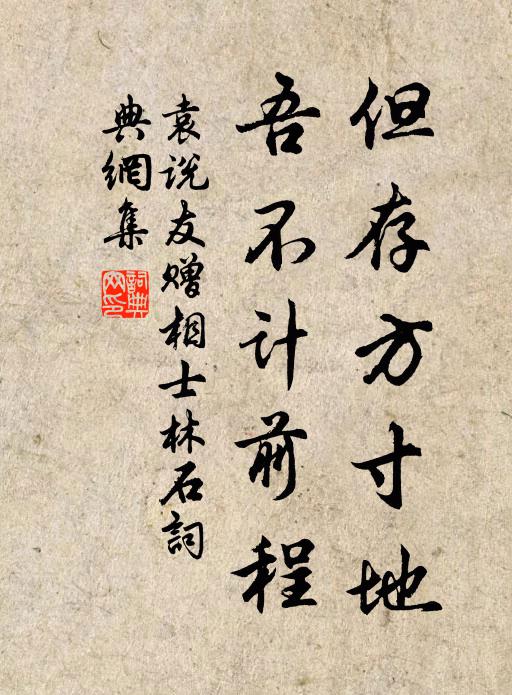 但存方寸地
吾不计前程
袁说友赠相士林石詞
典網集
詞典网印